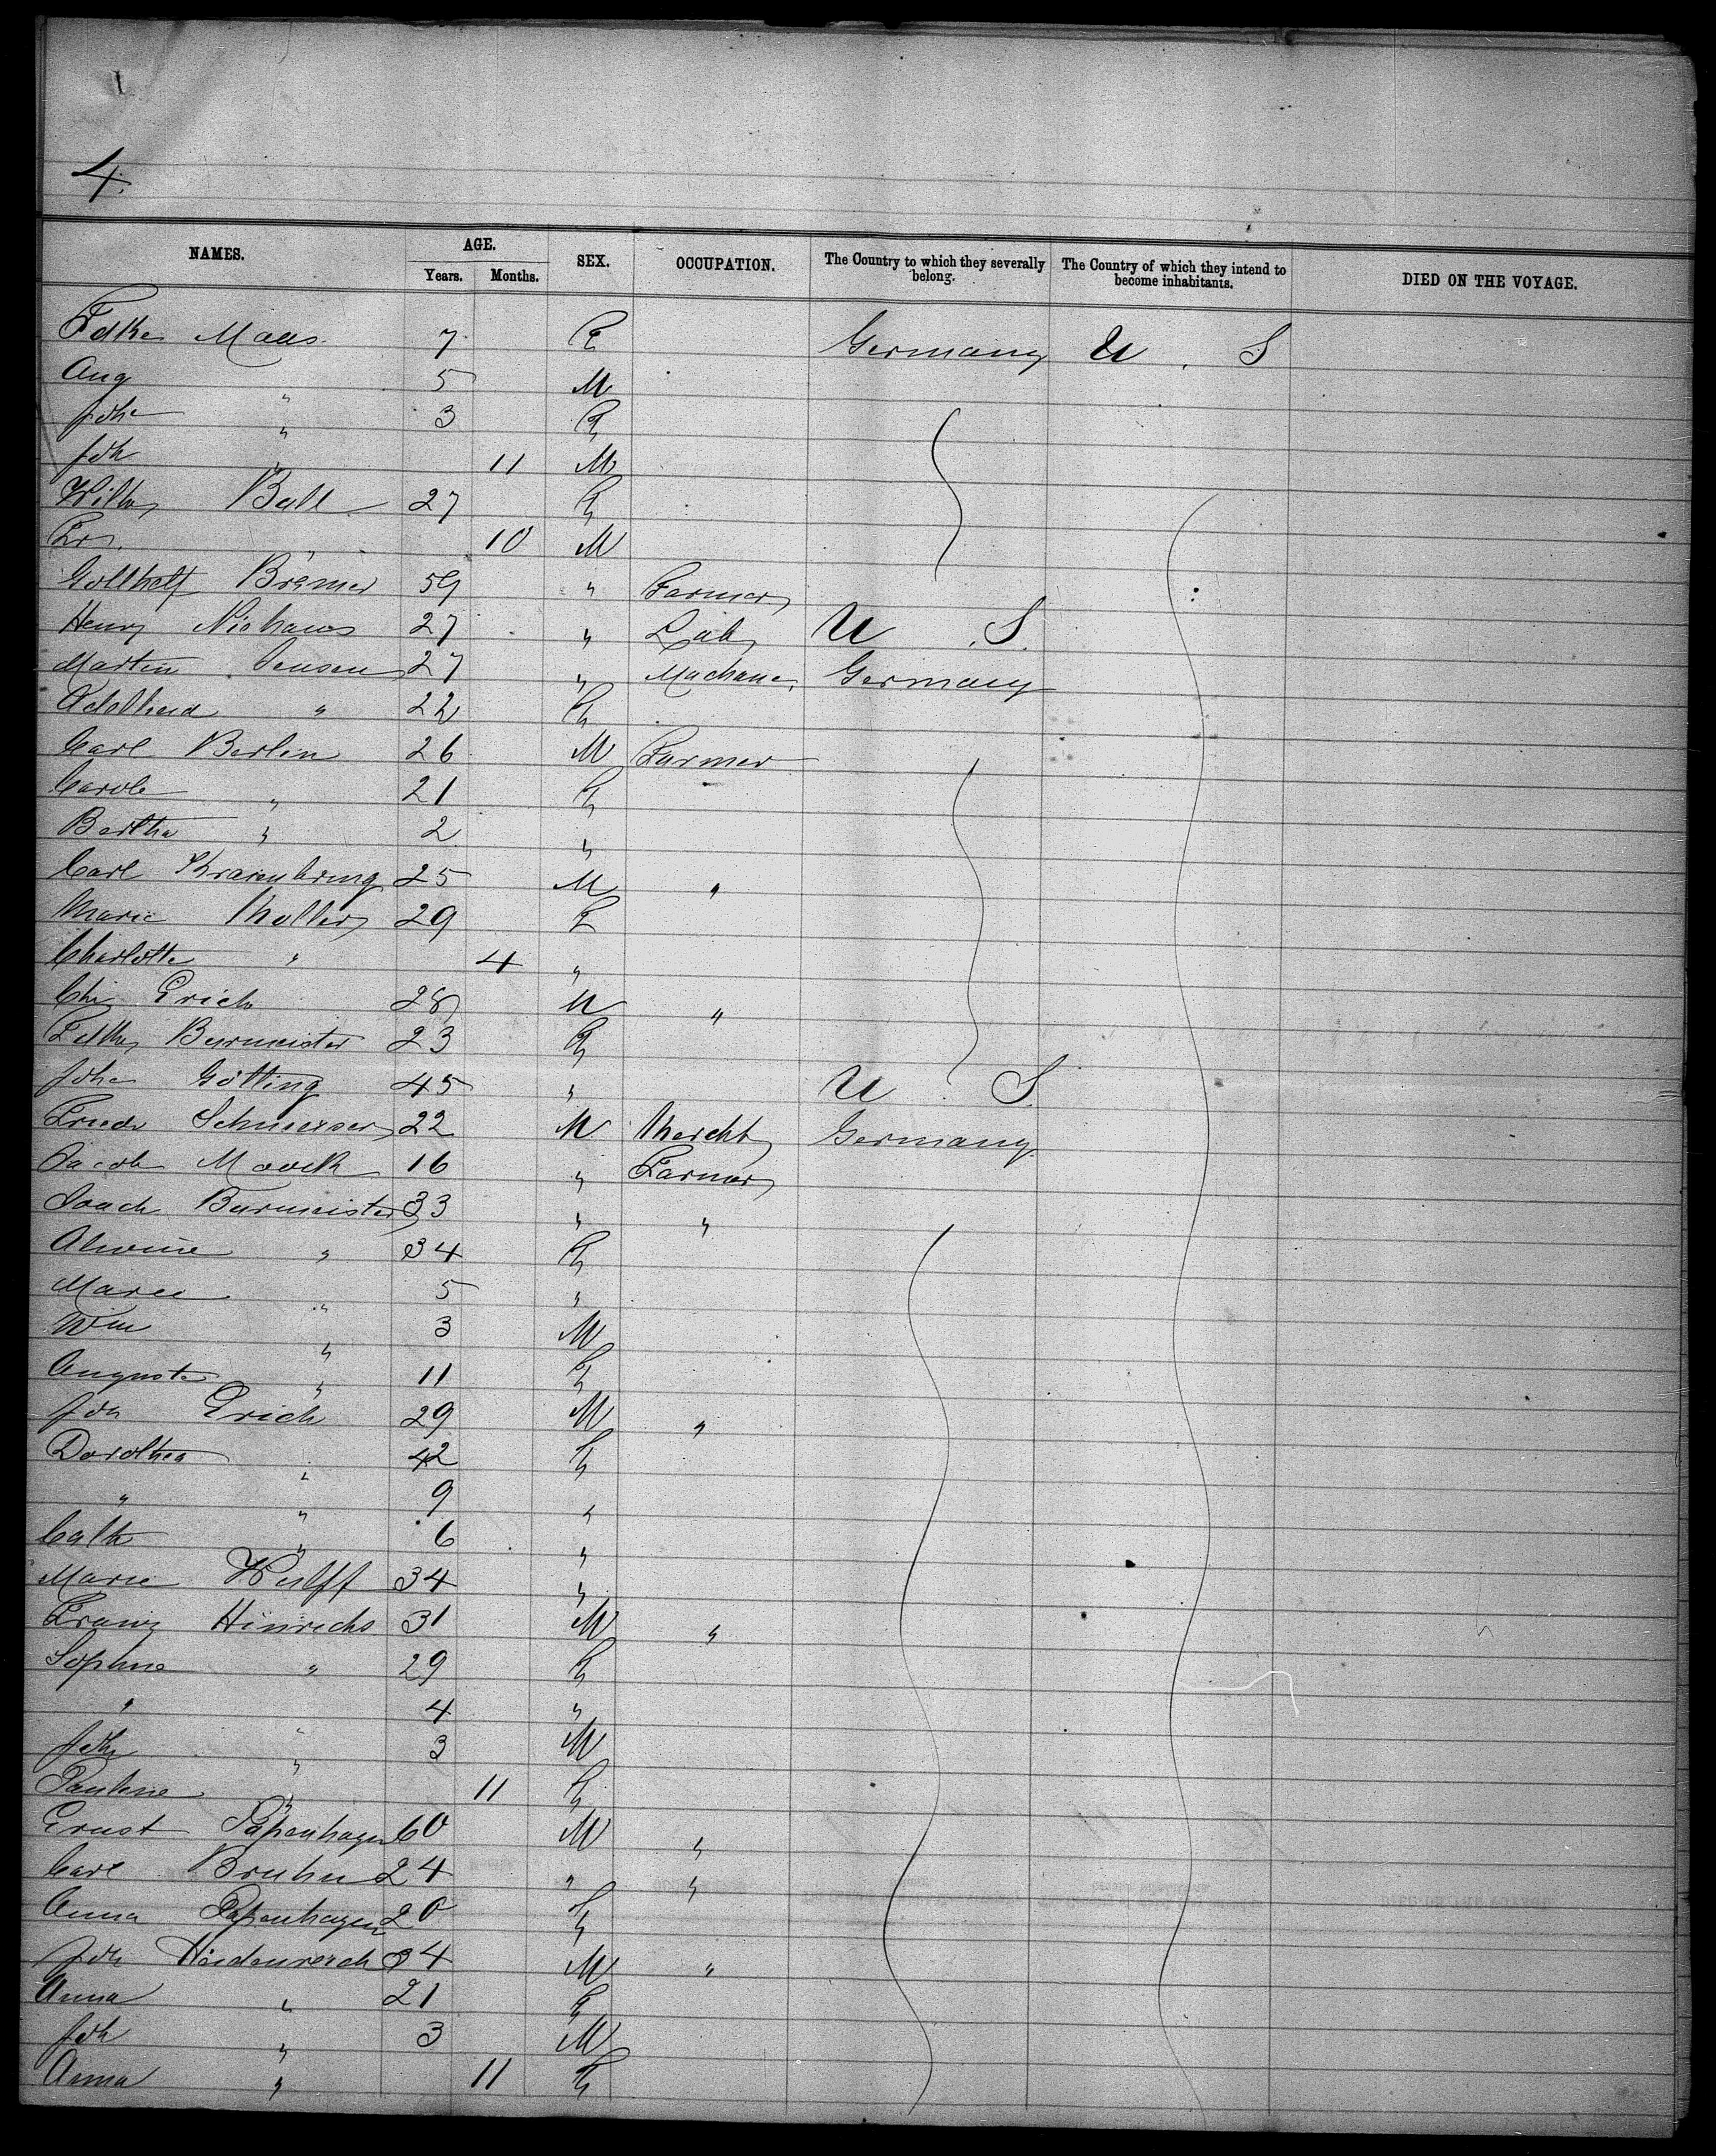 4.
NAMES. AGE. SEX. OCCUPATION. The Country to which they severally belong. The Country of which they intend to become inhabitants. DIED ON THE VOYAGE.
Years. Months.
Maas 7 F Germany U. S
Aug " 5 M
Johe " 3 F
Joh " 11 M
Wilh Ball 27 F
" 10 M
Bremer 59 " Farmer
Henry Niehaus 27 " Lab U. S.
Martin Jensen 27 " Germany
Adelheid " 22 F
Carl Berlin 26 M Farmer
Carole " 21 F
Bertha " 2 "
Carl 25 M "
Marie Moller 29 F
Charlotte " 4 "
Chr Erich 28 M "
Burmeister 23 F
Johe Götting 45 " U. S.
Friedr 22 M Mercht Germany
Jacob Moock 16 " Farmer
Joach Burmeister 33 " "
Alwine " 34 F
Marie " 5 "
Wm " 3 M
Auguste " 11 F
Joh Erich 29 M "
Dorothea " 42 F
" " 9 "
Cath " 6 "
Marie Wulff 34 "
Franz Hinrichs 31 M "
Sophie " 29 F
" " 4 "
Joh " 3 M
Pauline " 11 F
Ernst Papenhagen 60 M "
Carl Bruhn 24 " "
Anna Papenhagen 20 F
Joh Heidenreich 34 M "
Anna " 21 F
Joh " 3 M
Anna " 11 F